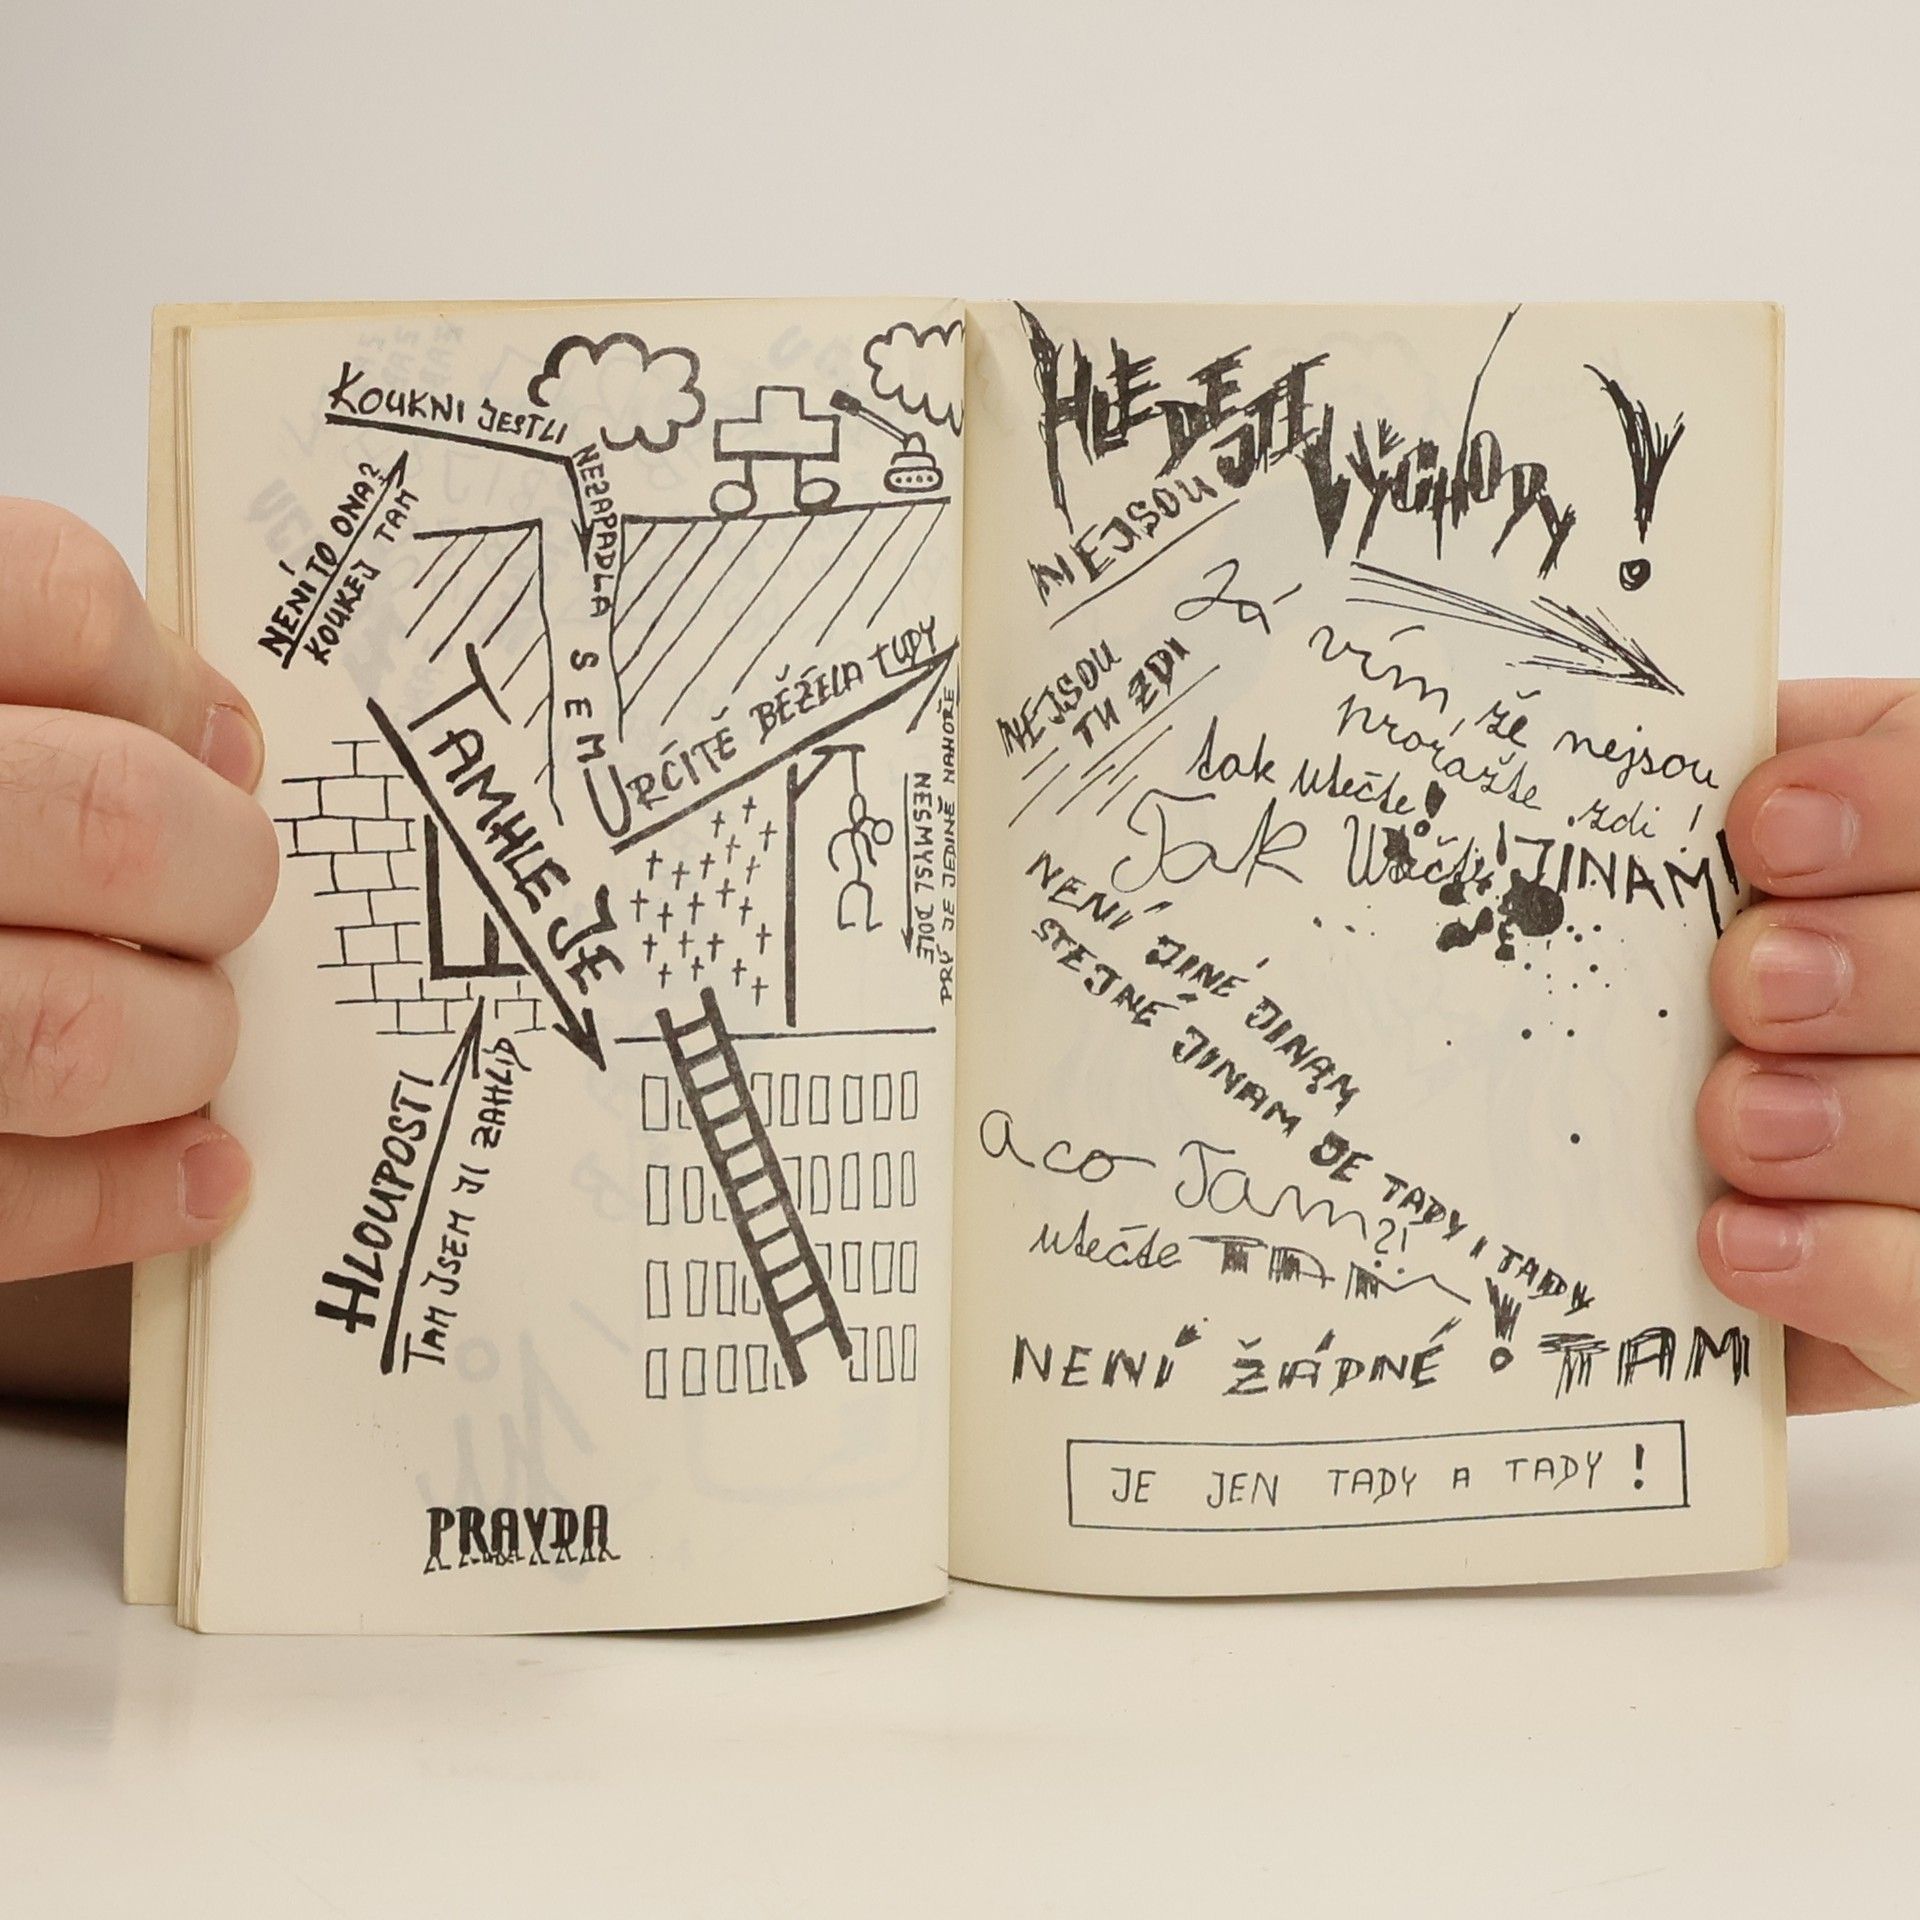 KOUKNI JESTLI
NEZAPADLA SEM
NENÍ TO ONA?
KOUKEJ TAM
TAMHLE JE
URČITĚ BĚŽELA TUDY
NESMYSL DOLE
PRÝ JE JEDINĚ NAHOŘE
HLOUPOSTI
TAM JSEM JI ZAHLÍD
PRAVDA
HLEDEJTE VÝCHOD!
NEJSOU
Já vím, že nejsou
prorazte zdi!
NEJSOU
TU ZDI
tak utečte!
Tak Utečte! JINAM!
NENÍ JINÉ JINAM
STEJNÉ JINAM JE TADY I TADY
a co Tam?!
utečte TAM!
NENÍ ŽÁDNÉ TAM
JE JEN TADY A TADY!